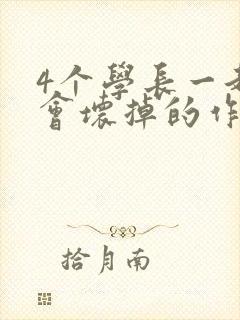 4个學長一
會壞掉的作
拾月南